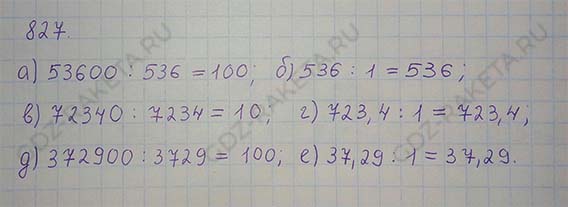 827.
а) 53600 : 536 = 100; б) 536 : 1 = 536;
в) 72340 : 7234 = 10; г) 723,4 : 1 = 723,4;
д) 372900 : 3729 = 100; е) 37,29 : 1 = 37,29.
GDZ-RAKETA.RU
GDZ-RAKETA.RU
GDZ-RAKETA.RU